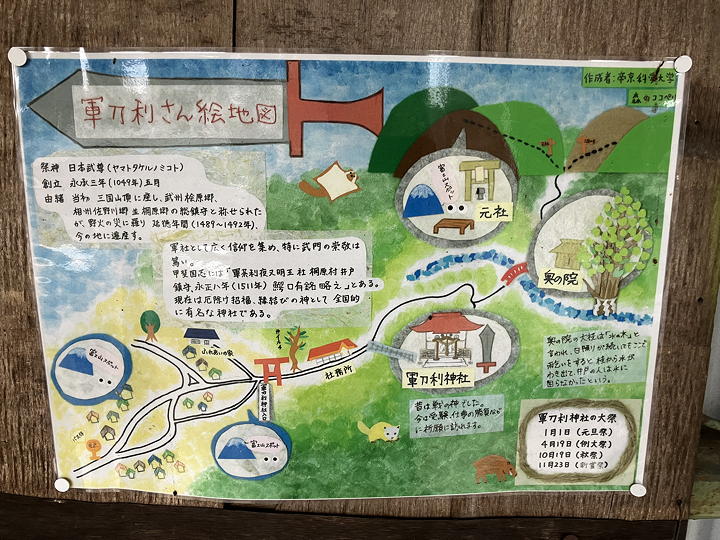 軍刀利さん絵地図
作成者:帝京科学大学
森のココペリ
祭神 日本武尊(ヤマトタケルノミコト)
創立 永承三年(1049年)五月
由緒 当初 三国山頂に座し、武州桧原郷、
相州佐野川郷並桐原郷の総鎮守と弥せられた
が、野火の災に罹り 延徳年間(1489〜1492年)、
今の地に遷座す。
軍社として広く信仰を集め、特に武門の崇敬は
篤い。
甲斐国志には「軍荼利夜叉明王社 桐原村井戸
鎮守、永正八年(1511年) 鰐口有銘略之」とある。
現在は厄除け招福、縁結びの神として 全国的
に有名な神社である。
富士山スポット
元社
奥の院
奥の院の大桂は「水の木」と
言われ、日照りが続いてもここで
雨乞いをすると 桂から水が
わき出て、井戸の人は水に
困らなかったという。
軍刀利神社
昔は戦の神でした。
今は受験、仕事の勝負など
に祈願に訪れる。
ふれあいの家
社務所
軍刀利神社入口
富士山スポット
富士山スポット
軍刀利神社の大祭
1月1日(元旦祭)
4月19日(例大祭)
10月19日(秋祭)
11月23日(新嘗祭)